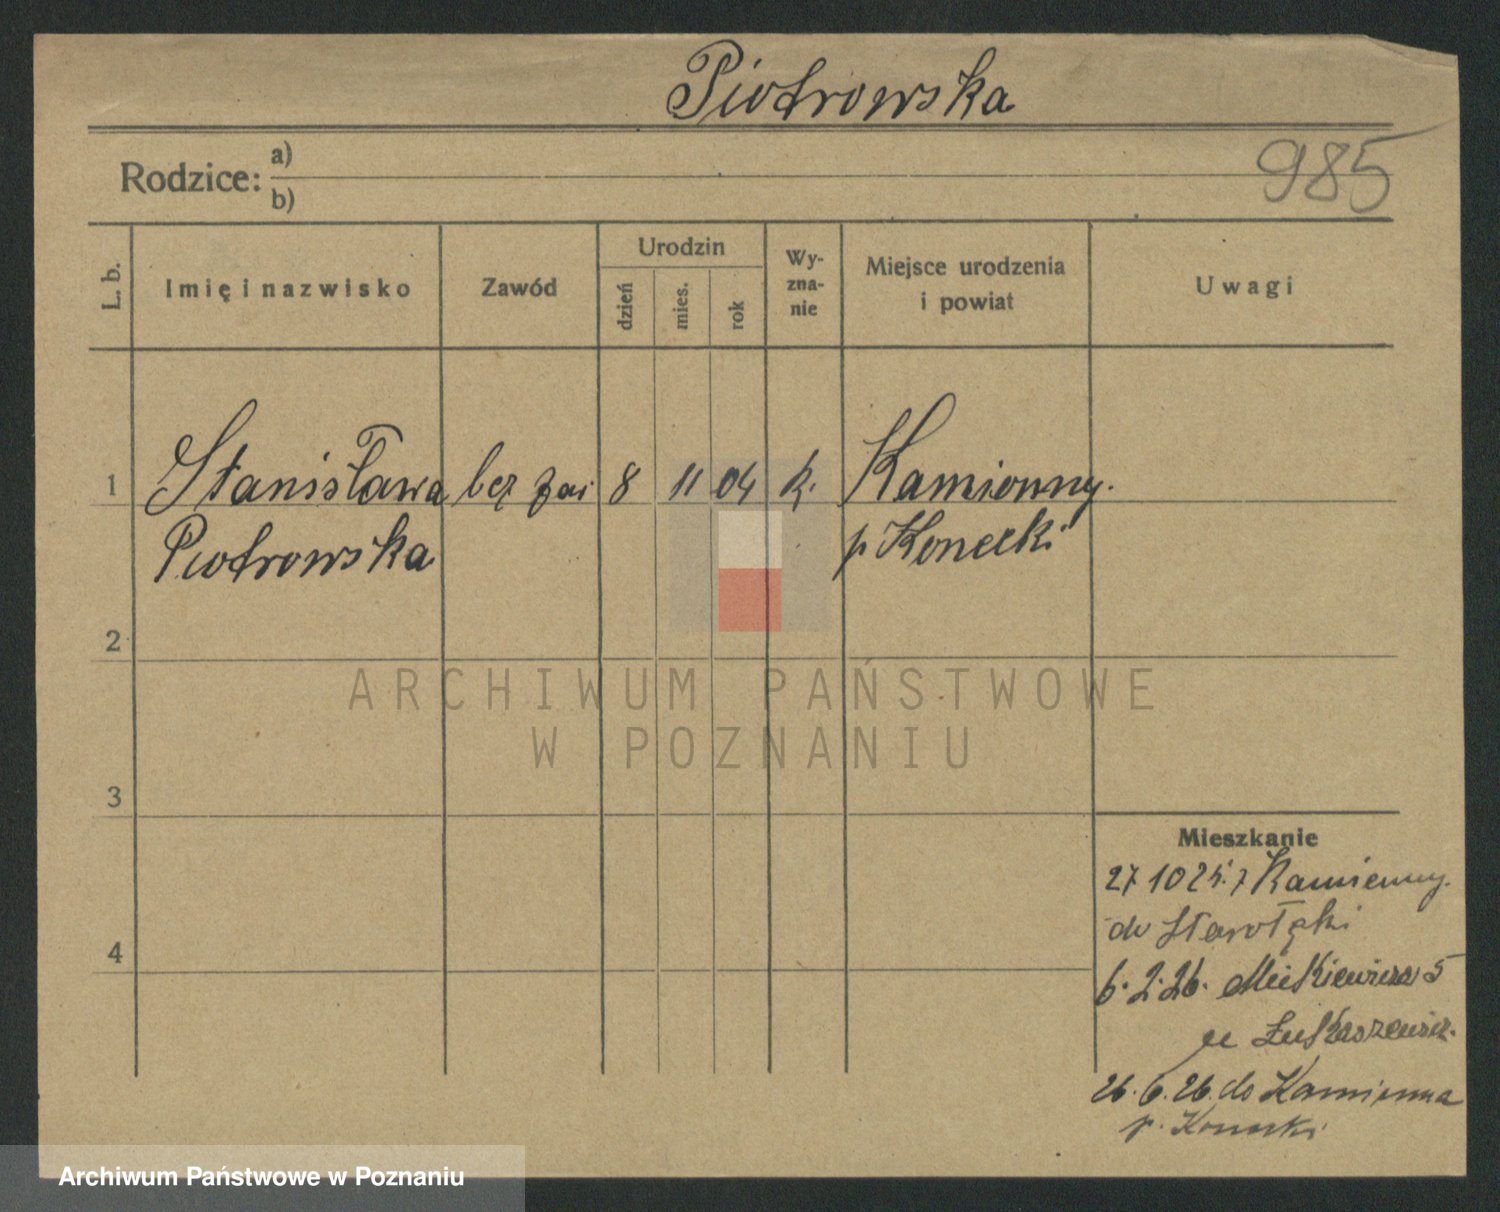 Piotrowska
985
Rodzice: a)
b)
L. b.
Imię i nazwisko
Zawód
Urodzin
dzień
mies.
rok
Wy-
zna-
nie
Miejsce urodzenia
i powiat
Uwagi
1 Stanisława bez zaw 8 11 04 k. Kamionny.
Piotrowska p Konecki
2
3
4
Mieszkanie
27 10 25. z Kamienny.
do Starołęki
6.2.26. Mickiewicza 5
u Łukaszewicz.
26.6.26. do Kamionna
p. Konecki
ARCHIWUM PAŃSTWOWE
W POZNANIU
Archiwum Państwowe w Poznaniu